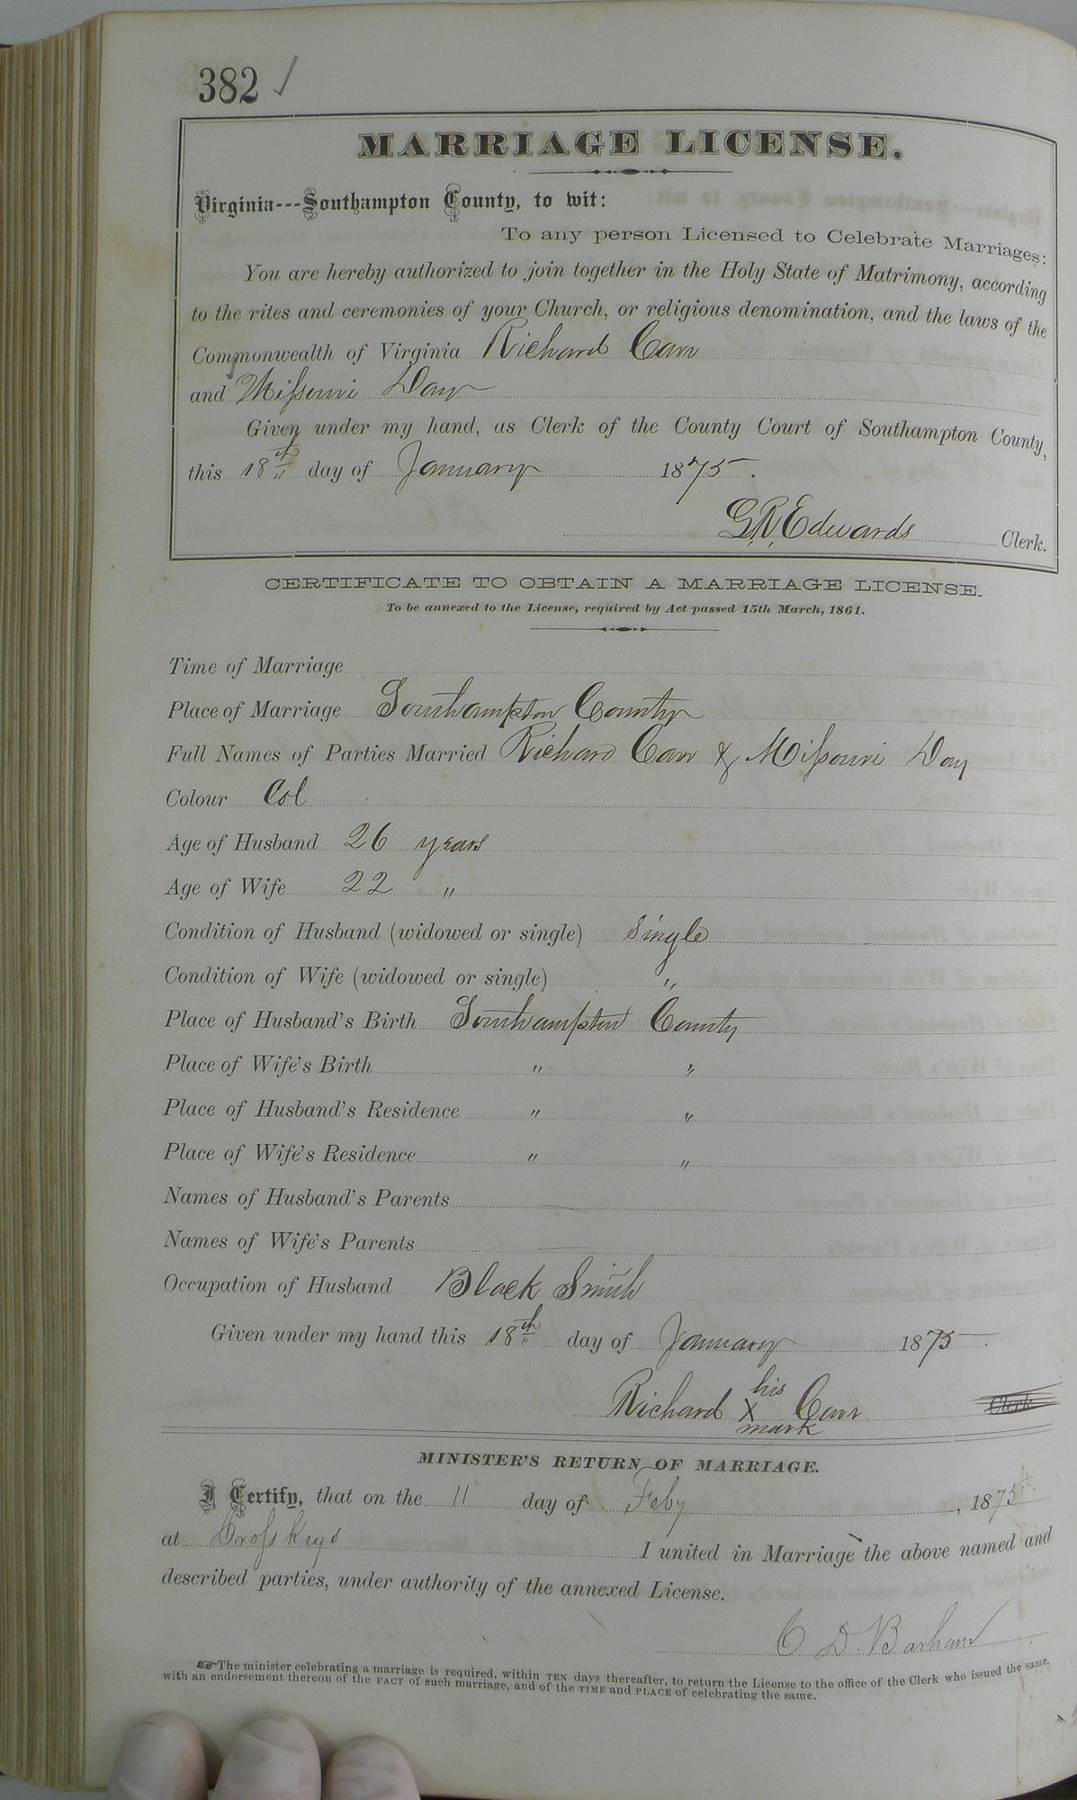 382 ✓
MARRIAGE LICENSE.
Virginia---Southampton County, to wit:
To any person Licensed to Celebrate Marriages:
You are hereby authorized to join together in the Holy State of Matrimony, according
to the rites and ceremonies of your Church, or religious denomination, and the laws of the
Commonwealth of Virginia Richard Carr
and Missouri Day
Given under my hand, as Clerk of the County Court of Southampton County,
this 18th day of January 1875.
G.R. Edwards Clerk.
CERTIFICATE TO OBTAIN A MARRIAGE LICENSE.
To be annexed to the License, required by Act passed 15th March, 1861.
Time of Marriage
Place of Marriage Southampton County
Full Names of Parties Married Richard Carr & Missouri Day
Colour Col
Age of Husband 26 years
Age of Wife 22 "
Condition of Husband (widowed or single) Single
Condition of Wife (widowed or single) "
Place of Husband's Birth Southampton County
Place of Wife's Birth " "
Place of Husband's Residence " "
Place of Wife's Residence " "
Names of Husband's Parents —
Names of Wife's Parents —
Occupation of Husband Black Smith
Given under my hand this 18th day of January 1875.
his
Richard X Carr Clerk
mark
MINISTER'S RETURN OF MARRIAGE.
I Certify, that on the 11 day of Feby, 1875
at Cross Keys I united in Marriage the above named and
described parties, under authority of the annexed License.
C D. Barham
☞ The minister celebrating a marriage is required, within TEN days thereafter, to return the License to the office of the Clerk who issued the same,
with an endorsement thereon of the FACT of such marriage, and of the TIME and PLACE of celebrating the same.